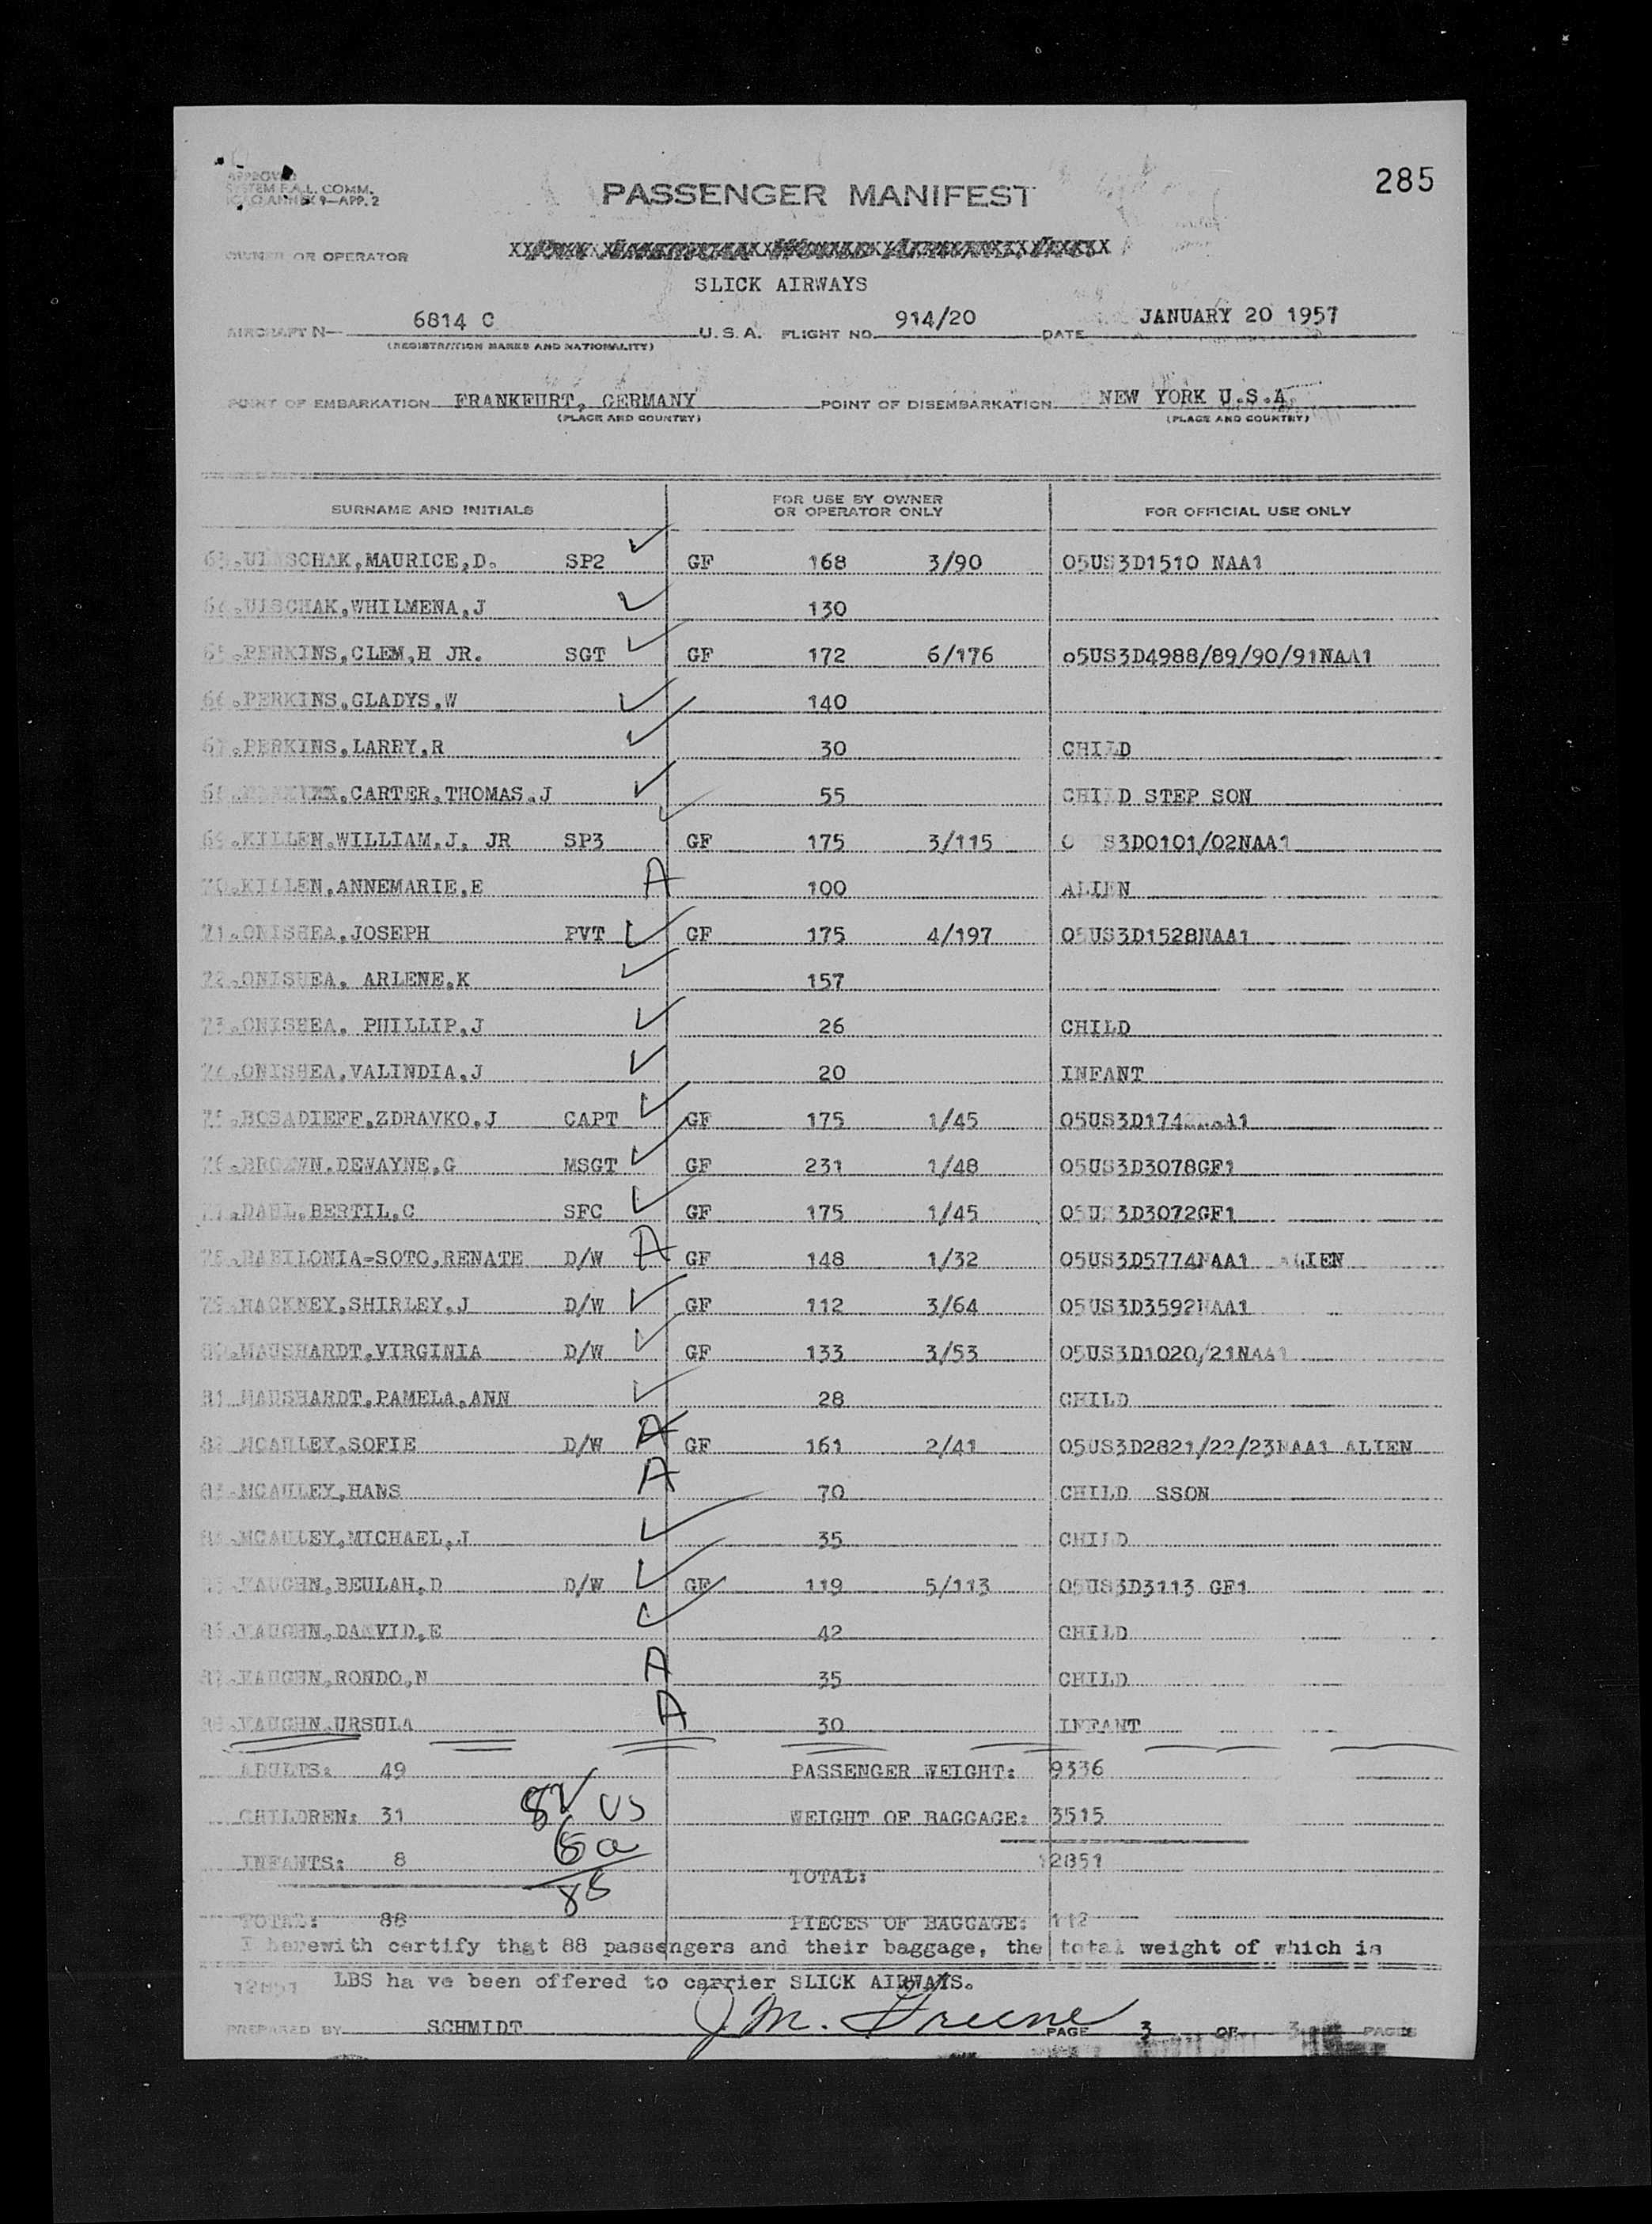 285
APPROVED
SYSTEM F.A.L. COMM.
ICAO ANNEX 9—APP. 2
PASSENGER MANIFEST
OWNER OR OPERATOR
SLICK AIRWAYS
AIRCRAFT N— 6814 C U. S. A. FLIGHT NO. 914/20 DATE JANUARY 20 1957
(REGISTRATION MARKS AND NATIONALITY)
POINT OF EMBARKATION FRANKFURT, GERMANY POINT OF DISEMBARKATION NEW YORK U.S.A.
(PLACE AND COUNTRY) (PLACE AND COUNTRY)
SURNAME AND INITIALS FOR USE BY OWNER OR OPERATOR ONLY FOR OFFICIAL USE ONLY
MAURICE,D. SP2 GF 168 3/90 05US3D1510 NAA1
64.ULSCHAK,WHILMENA,J 130
65.PERKINS,CLEM,H JR. SGT GF 172 6/176 o5US3D4988/89/90/91NAA1
66.PERKINS,GLADYS,W 140
67.PERKINS,LARRY,R 30 CHILD
68. CARTER,THOMAS,J 55 CHILD STEP SON
69.KILLEN,WILLIAM,J, JR SP3 GF 175 3/115 S3D0101/02NAA1
70.KILLEN,ANNEMARIE,E A 100 ALIEN
71.ONISHEA,JOSEPH PVT GF 175 4/197 05US3D1528NAA1
72.ONISHEA, ARLENE,K 157
73.ONISHEA, PHILLIP,J 26 CHILD
74.ONISHEA,VALINDIA,J 20 INFANT
75.BOSADIEFF,ZDRAVKO,J CAPT GF 175 1/45
76.BROWN,DEWAYNE,G MSGT GF 231 1/48 05US3D3078GF1
77.DAHL,BERTIL,C SFC GF 175 1/45 05US3D3072GF1
78.BABILONIA-SOTO,RENATE D/W A GF 148 1/32 05US3D5774NAA1 ALIEN
79.HACKNEY,SHIRLEY,J D/W GF 112 3/64 05US3D3592NAA1
80.MAUSHARDT,VIRGINIA D/W GF 133 3/53 05US3D1020/21NAA1
81.MAUSHARDT,PAMELA,ANN 28 CHILD
82.MCAULEY,SOFIE D/W A GF 161 2/41 05US3D2821/22/23NAA1 ALIEN
83.MCAULEY,HANS A 70 CHILD SSON
84.MCAULEY,MICHAEL,J 35 CHILD
85.VAUGHN,BEULAH,D D/W GF 119 5/113 05US3D3113 GF1
86.VAUGHN,DAVID,E 42 CHILD
87.VAUGHN,RONDO,N A 35 CHILD
88.VAUGHN,URSULA A 30 INFANT
ADULTS: 49 PASSENGER WEIGHT: 9336
CHILDREN: 31 82 US WEIGHT OF BAGGAGE: 3515
INFANTS: 8 6 a TOTAL: 12851
88
TOTAL: 88 PIECES OF BAGGAGE: 112
I herewith certify that 88 passengers and their baggage, the total weight of which is
12851 LBS ha ve been offered to carrier SLICK AIRWAYS.
PREPARED BY SCHMIDT J.M. Greene PAGE 3 OF 3 PAGES